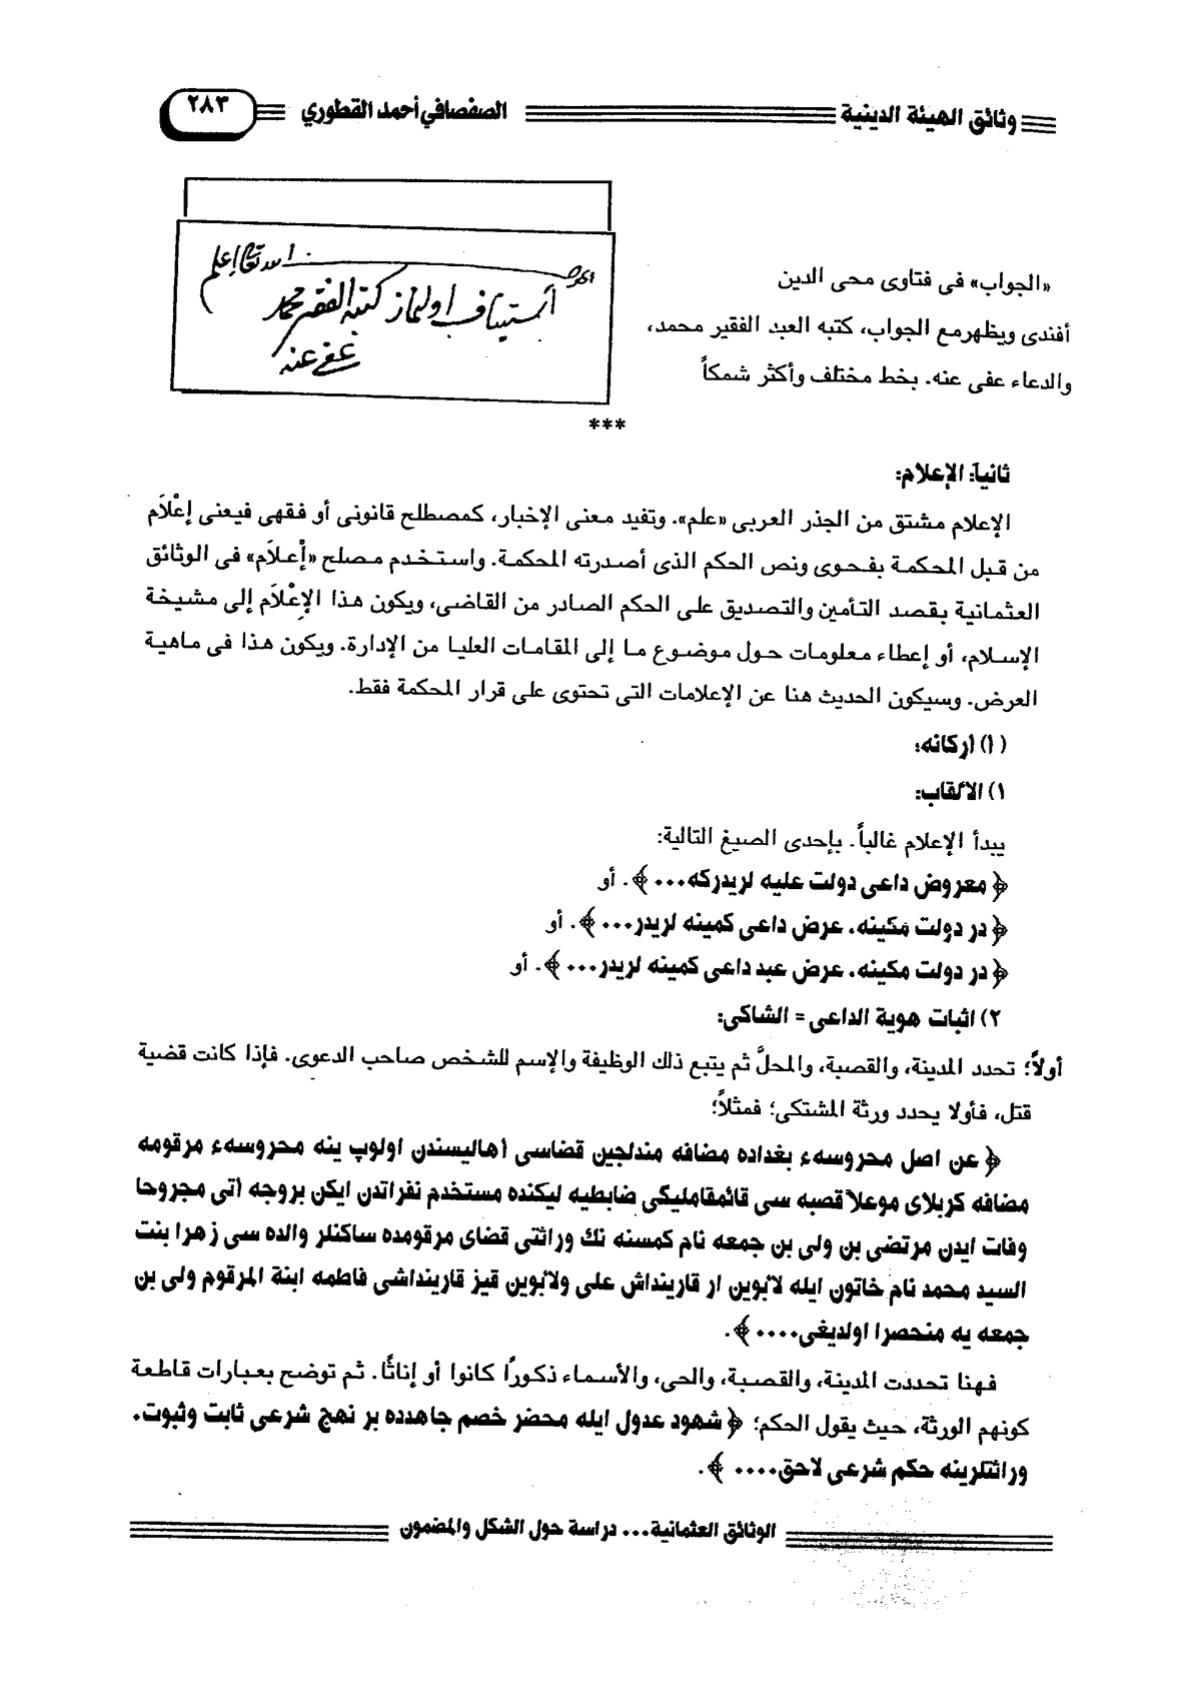 وثائق الهيئة الدينية الصفصافي أحمد القطوري ٢٨٣
الله تعالى اعلم
اولنماز كتبه الفقير محمد
عفى عنه
«الجواب» فى فتاوى محى الدين
أفندى ويظهرمع الجواب، كتبه العبد الفقير محمد،
والدعاء عفى عنه. بخط مختلف وأكثر شمكاً
***
ثانياً: الإعلام:
الإعلام مشتق من الجذر العربى «علم». وتفيد معنى الإخبار، كمصطلح قانونى أو فقهى فيعنى إعْلاَم
من قبل المحكمة بفحوى ونص الحكم الذى أصدرته المحكمة. واستخدم مصلح «أعلاَم» فى الوثائق
العثمانية بقصد التأمين والتصديق على الحكم الصادر من القاضى، ويكون هذا الإعْلاَم إلى مشيخة
الإسلام، أو إعطاء معلومات حول موضوع ما إلى المقامات العليا من الإدارة. ويكون هذا فى ماهية
العرض. وسيكون الحديث هنا عن الإعلامات التى تحتوى على قرار المحكمة فقط.
(أ) أركانه:
١) الألقاب:
يبدأ الإعلام غالباً. بإحدى الصيغ التالية:
﴿ معروض داعى دولت عليه لريدركه... ﴾. أو
﴿ در دولت مكينه، عرض داعى كمينه لريدر... ﴾. أو
﴿ در دولت مكينه، عرض عبد داعى كمينه لريدر... ﴾. أو
٢) اثبات هوية الداعى = الشاكى:
أولاً؛ تحدد المدينة، والقصبة، والمحلَّ ثم يتبع ذلك الوظيفة والإسم للشخص صاحب الدعوى. فإذا كانت قضية
قتل، فأولا يحدد ورثة المشتكى؛ فمثلاً؛
﴿ عن اصل محروسهء بغداده مضافه مندلجين قضاسى أهاليسندن اولوپ ينه محروسهء مرقومه
مضافه كربلاى موعلا قصبه سى قائمقامليكى ضابطيه ليكنده مستخدم نفراتدن ايكن بروجه أتى مجروحا
وفات ايدن مرتضى بن ولى بن جمعه نام كمسنه نك وراثتى قضاى مرقومده ساكنلر والده سى زهرا بنت
السيد محمد نام خاتون ايله لابوين ار قارينداش على ولابوين قيز قارينداشى فاطمه ابنة المرقوم ولى بن
جمعه يه منحصرا اولديغى.... ﴾.
فهنا تحددت المدينة، والقصبة، والحى، والأسماء ذكورًا كانوا أو إناثًا. ثم توضح بعبارات قاطعة
كونهم الورثة، حيث يقول الحكم؛ ﴿ شهود عدول ايله محضر خصم جاهدده بر نهج شرعى ثابت وثبوت.
وراثتلرينه حكم شرعى لاحق.... ﴾.
الوثائق العثمانية... دراسة حول الشكل والمضمون